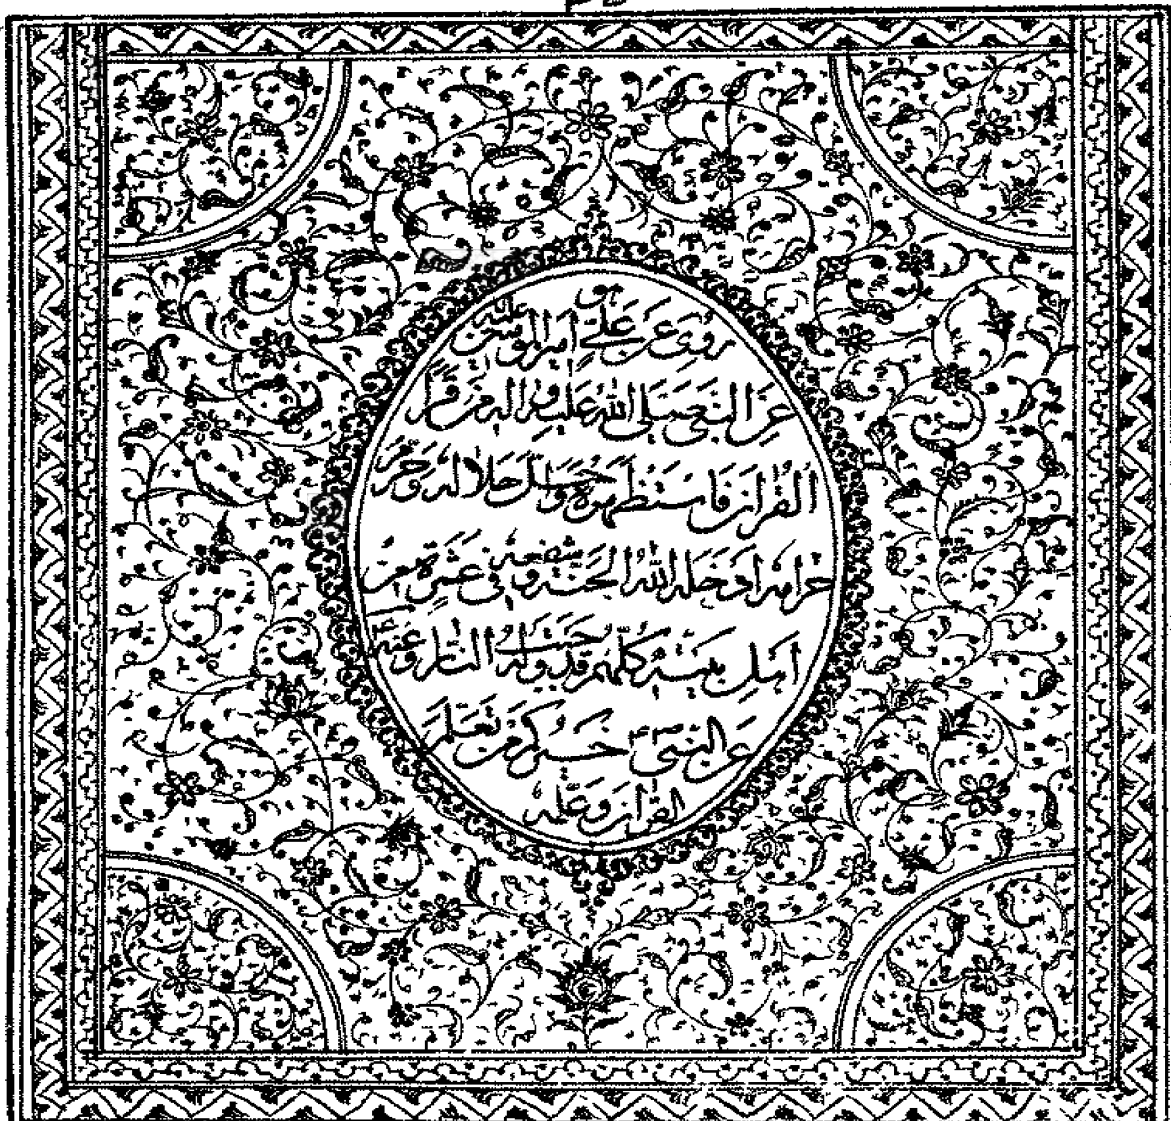 هو
روی عن علی امیر المؤمنین علیه
عن النبی صلی الله علیه واله من قرأ
القرآن فاستظهره واحل حلاله وحرم
حرامه ادخله الله الجنة وشفعه فی عشرة من
اهل بیته کلهم قد وجبت له النار
عن النبی ص خیرکم من تعلم
القرآن وعلمه